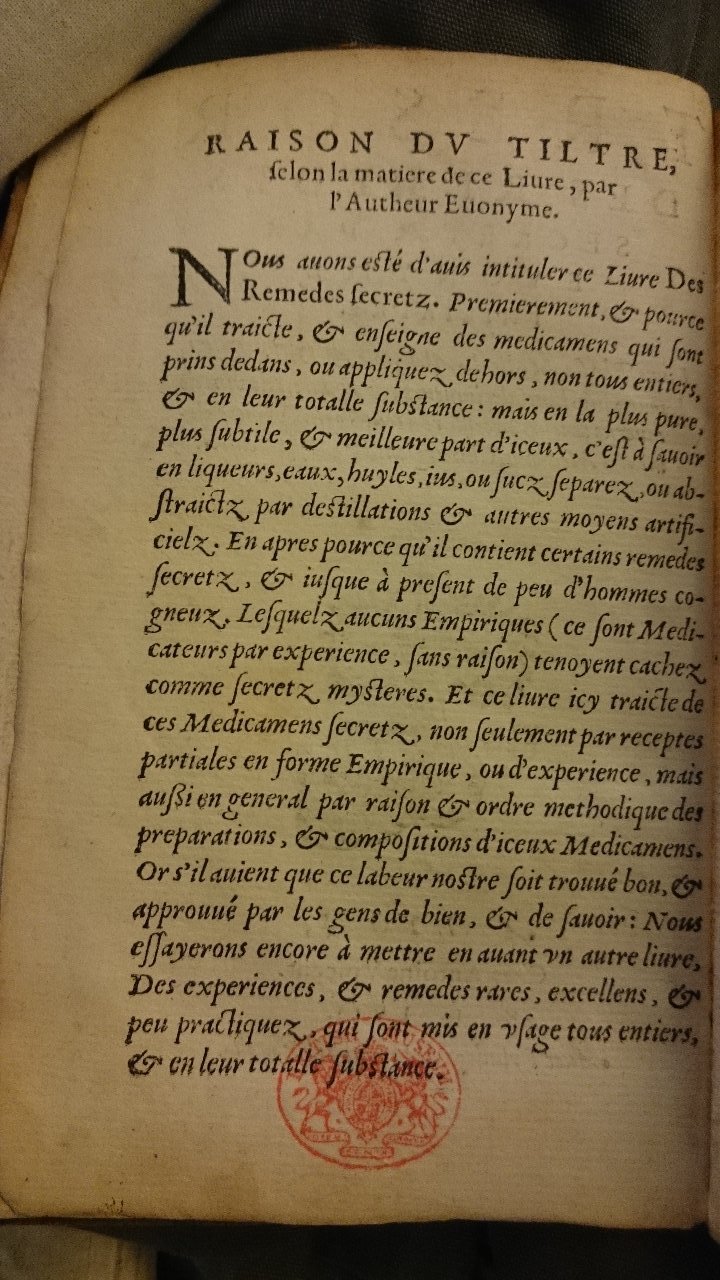 RAISON DV TILTRE,
ſelon la matiere de ce Liure, par
l'Autheur Euonyme.
NOus auons eſté d'auis intituler ce Liure Des
Remedes ſecretz. Premierement, & pource
qu'il traicte, & enſeigne des medicamens qui ſont
prins dedans, ou appliquez dehors, non tous entiers,
& en leur totalle ſubſtance: mais en la plus pure,
plus ſubtile, & meilleure part d'iceux, c'eſt à ſauoir
en liqueurs, eaux, huyles, ius, ou ſucz ſeparez, ou ab-
ſtraictz par deſtillations & autres moyens artifi-
cielz. En apres pource qu'il contient certains remedes
ſecretz, & iuſque à preſent de peu d'hommes co-
gneuz. Leſquelz aucuns Empiriques (ce ſont Medi-
cateurs par experience, ſans raiſon) tenoyent cachez
comme ſecretz myſteres. Et ce liure icy traicte de
ces Medicamens ſecretz, non ſeulement par receptes
partiales en forme Empirique, ou d'experience, mais
auſſi en general par raiſon & ordre methodique des
preparations, & compoſitions d'iceux Medicamens.
Or s'il auient que ce labeur noſtre ſoit trouué bon, &
approuué par les gens de bien, & de ſauoir: Nous
eſſayerons encore à mettre en auant vn autre liure,
Des experiences, & remedes rares, excellens, &
peu practiquez, qui ſont mis en vſage tous entiers,
& en leur totalle ſubſtance.